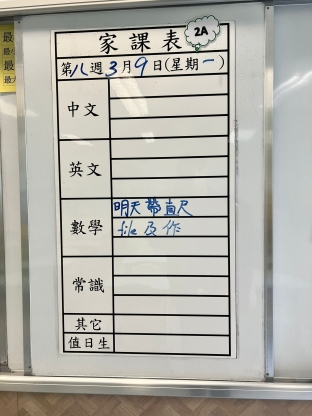 家課表
2A
第八週3月9日(星期一)
中文
英文
數學
明天帶直尺
file及作
常識
其它
值日生